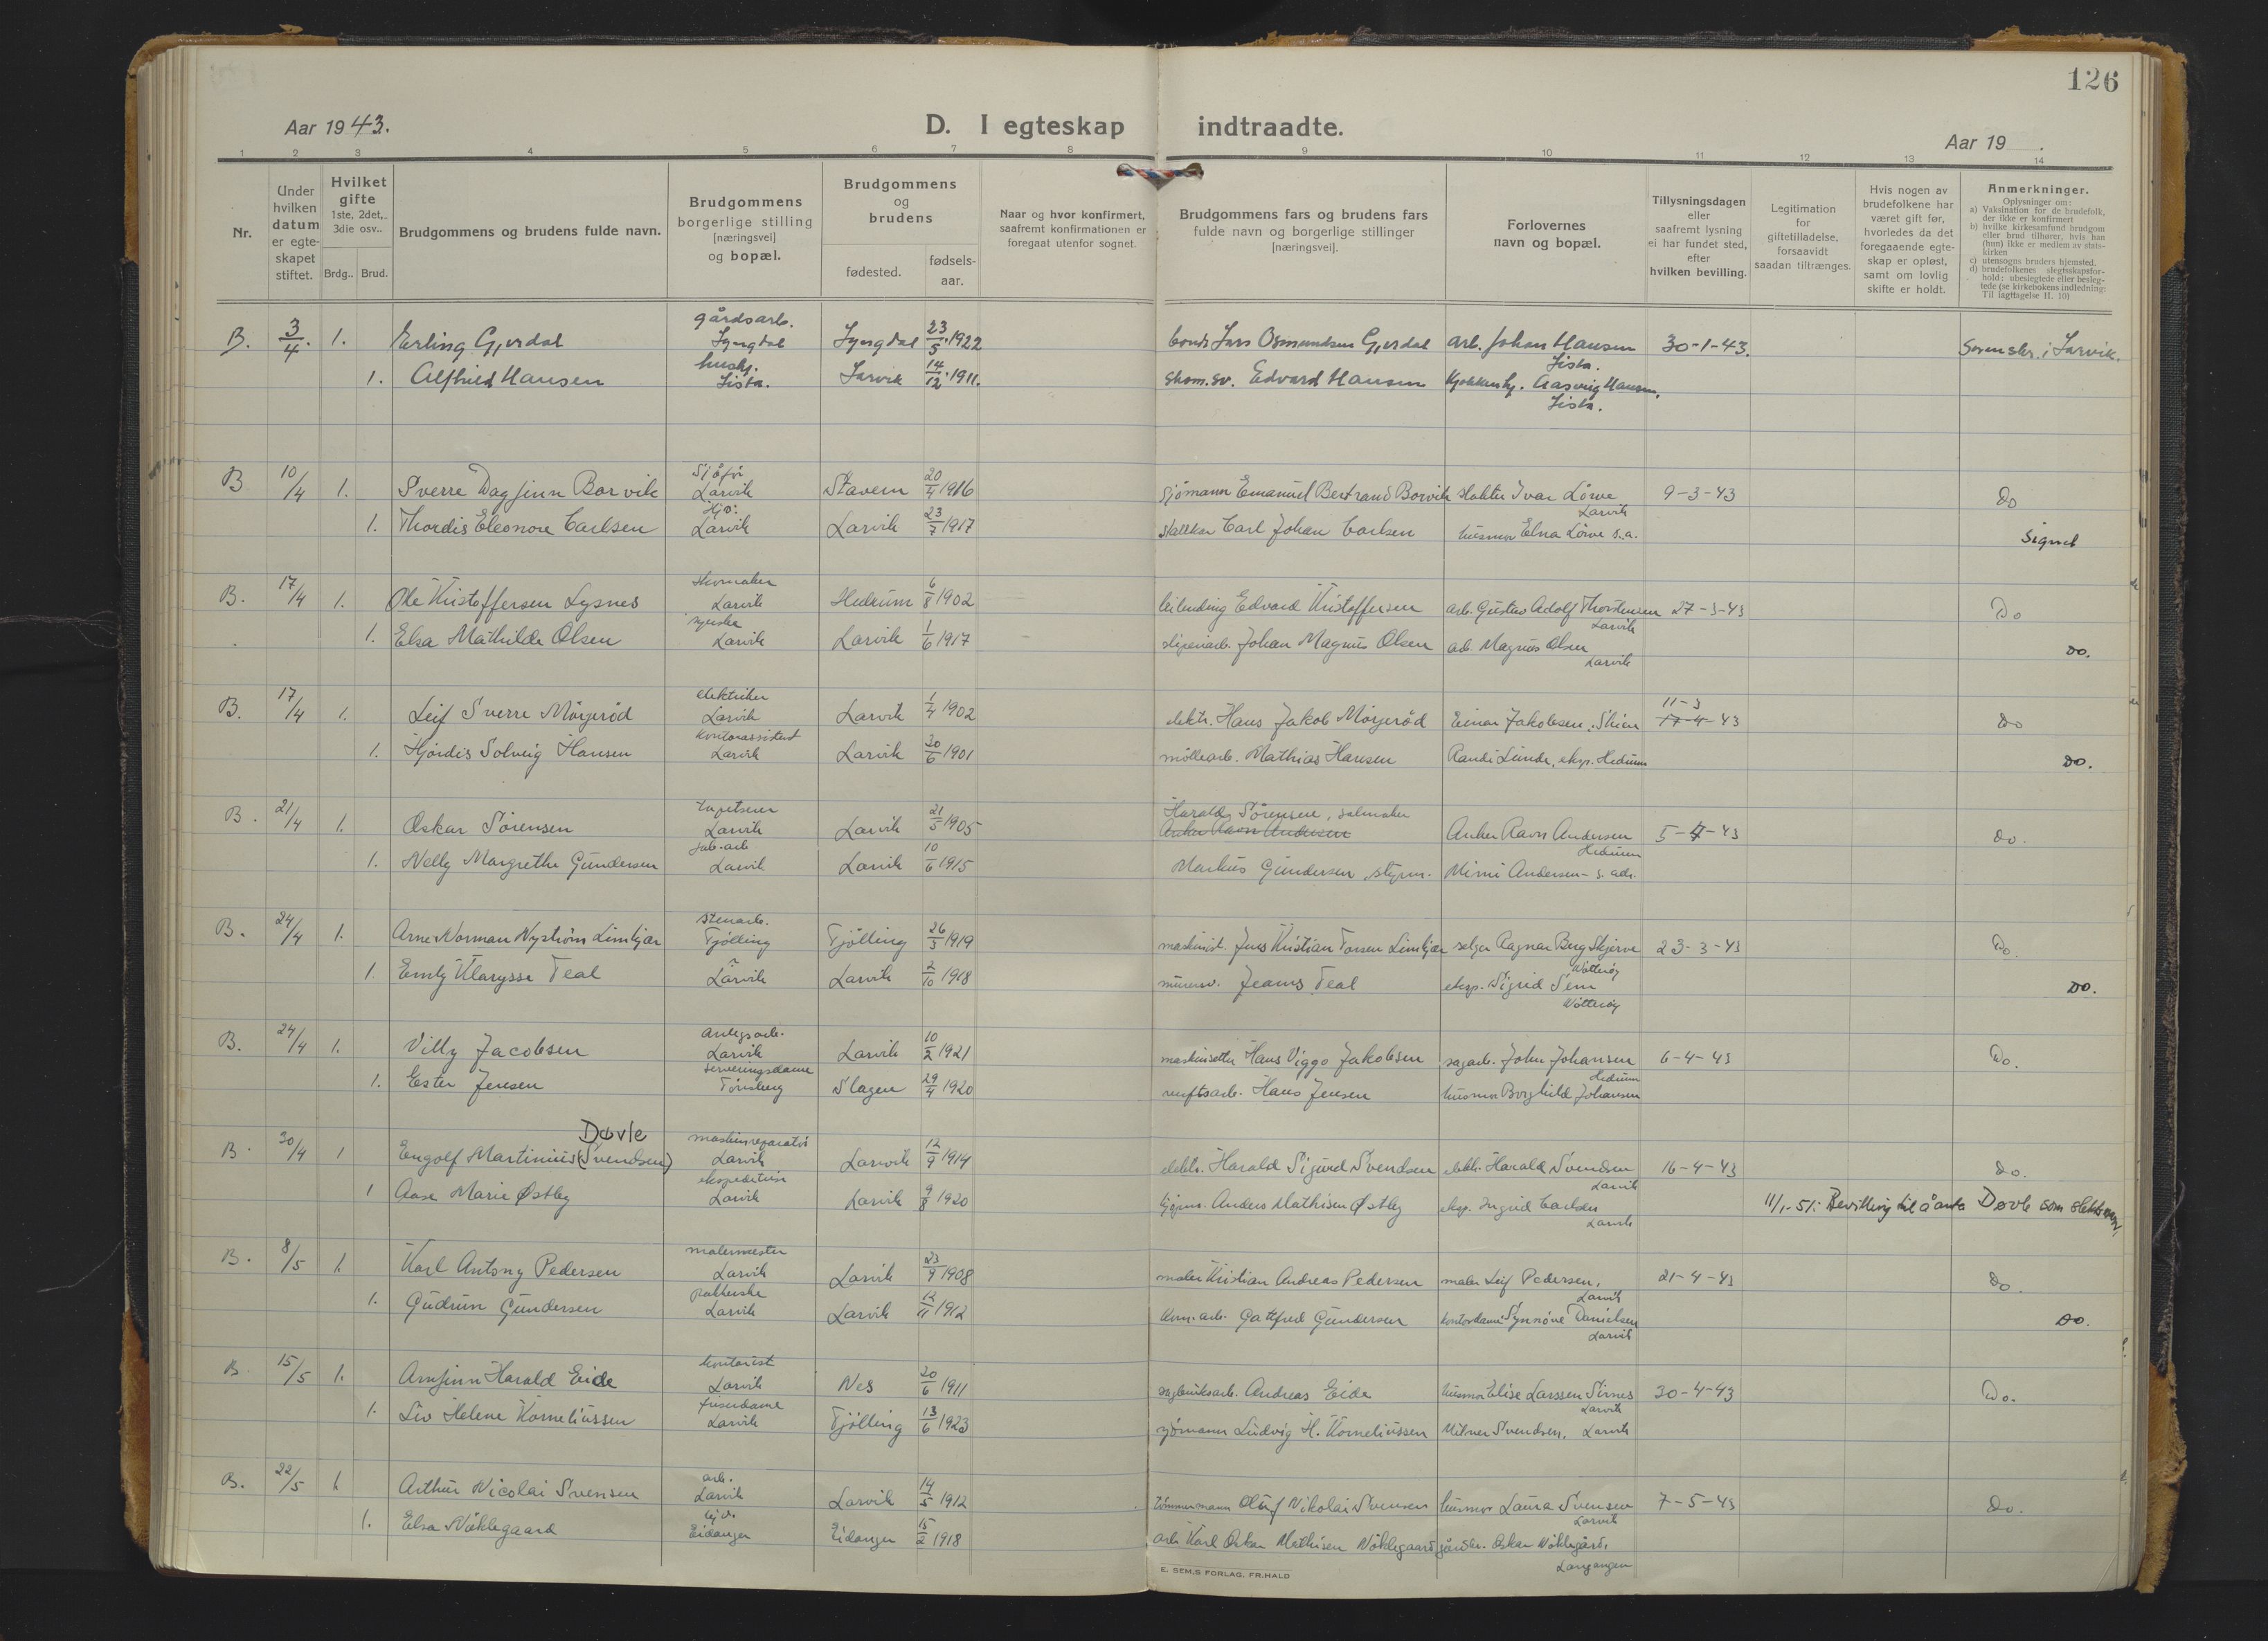 126
Aar 1943.
D. I egteskap indtraadte.
Aar 19 .
1 2 3 4 5 6 7 8 9 10 11 12 13 14
Nr.
Under hvilken datum er egte-skapet stiftet.
Hvilket gifte 1ste, 2det, 3die osv..
Brdg.. Brud.
Brudgommens og brudens fulde navn.
Brudgommens borgerlige stilling [næringsvei] og bopæl.
Brudgommens og brudens
fødested.
fødsels-aar.
Naar og hvor konfirmert, saafremt konfirmationen er foregaat utenfor sognet.
Brudgommens fars og brudens fars fulde navn og borgerlige stillinger [næringsvei].
Forlovernes navn og bopæl.
Tillysningsdagen eller saafremt lysning ei har fundet sted, efter hvilken bevilling.
Legitimation for giftetilladelse, forsaavidt saadan tiltrænges.
Hvis nogen av brudefolkene har været gift før, hvorledes da det foregaaende egte-skap er opløst, samt om lovlig skifte er holdt.
Anmerkninger.
Oplysninger om:
a) Vaksination for de brudefolk, der ikke er konfirmert
b) hvilke kirkesamfund brudgom eller brud tilhører, hvis han (hun) ikke er medlem av stats-kirken
c) utensogns bruders hjemsted.
d) brudefolkenes slegtsskapsfor-hold: ubeslegtede eller besleg-tede (se kirkebokens indledning: Til iagttagelse II. 10)
B. 3/4. 1. Erling Gjerdal gårdsarb. Lyngdal Lyngdal 23/5.1922 bonde Lars Osmundsen Gjerdal arb. Johan Hansen Lista. 30-1-43. Sorenskr. i Larvik.
1. Alfhild Hansen hushj. Lista. Larvik 14/12.1911. Skom.sv. Edvard Hansen Kjøkkenhj. Aasveig Hansen, Lista.
B 10/4 1. Sverre Dagfinn Borvik Sjåfør Larvik Stavern 20/4 1916 Sjømann Emanuel Bertrand Borvik slakter Ivar Löwe Larvik 9-3-43 Do
1. Thordis Eleonore Carlsen Hjv. Larvik Larvik 23/7 1917 stallkar Carl Johan Carlsen husmor Elna Löwe s.a. Signet
B. 17/4 1. Ole Kristoffersen Lysnes skomaker Larvik Hedrum 6/8 1902 leilending Edvard Kristoffersen arb. Gustav Adolf Thorstensen Larvik 27-3-43 Do
1. Elsa Mathilde Olsen syerske Larvik Larvik 1/6 1917 sliperiarb. Johan Magnus Olsen arb. Magnus Olsen Larvik Do.
B. 17/4 1. Leif Sverre Mörjeröd elektriker Larvik Larvik 1/4 1902 elektr. Hans Jakob Mörjeröd Einar Jakobsen, Skien 11-3 17-4-43 Do
1. Hjördis Solveig Hansen Kontorassistent Larvik Larvik 20/6 1901 möllearb. Mathias Hansen Randi Lunde, eksp. Hedrum Do.
B. 21/4 1. Oskar Sörensen tapetserer Larvik Larvik 21/5 1905 Harald Sörensen, salmaker Anker Ravn Andersen Anker Ravn Andersen Hedrum 5-4-43 Do.
1. Nelly Margrethe Gundersen fab.arb. Larvik Larvik 10/6 1915 Markus Gundersen, styrm. Mimi Andersen - s. adr.
B. 24/4 1. Arne Norman Nyström Limkjær stenarb. Tjölling Tjölling 26/3 1919 maskinist. Jens Kristian Tonsen Limkjær selger Ragnar Berg Skjerve Nötteröy 23-3-43 Do.
1. Emly Klarysse Teal Larvik Larvik 2/10 1918 murersv. Jeams Teal eksp. Sigrid Sem Nötteröy Do.
B. 24/4 1. Villy Jacobsen anlegsarb. Larvik Larvik 10/2 1921 maskinsetter Hans Viggo Jakobsen sagarb. John Johansen Hedrum 6-4-43 Do.
1. Ester Jensen serveringsdame Tönsberg Slagen 29/4 1920 verftsarb. Hans Jensen husmor Borghild Johansen
B. 30/4 1 Engolf Martinius (Svendsen) Døvle maskinreparatør Larvik Larvik 12/9 1914 elektr. Harald Sigurd Svendsen elektr. Harald Svendsen Larvik 16-4-43 Do.
1 Aase Marie Østby ekspeditrise Larvik Larvik 9/8 1920 Anders Mathisen Østby eksp. Ingrid Carlsen Larvik 11/1-51: Bevilling til å anta Døvle som slektsnavn.
B. 8/5 1. Karl Antony Pedersen malermester Larvik Larvik 23/9 1908 maler Kristian Andreas Pedersen maler Leif Pedersen, Larvik 21-4-43 Do.
1. Gudrun Gundersen pakkerske Larvik Larvik 12/11 1912 kom. arb. Gottfred Gundersen kontordame Synnöve Danielsen Larvik Do.
B 15/5 1. Arnfinn Harald Eide kontorist Larvik Nes 20/6 1911 sagbruksarb. Andreas Eide husmor Elise Larssen Sirnes Larvik 30-4-43 Do.
1. Liv Helene Korneliussen friserdame Larvik Tjölling 13/6 1923 sjömann Ludvig H. Korneliussen Milner Svendsen, Larvik
B. 22/5 1. Arthur Nicolai Svensen arb. Larvik Larvik 14/5 1912 tömmermann Oluf Nikolai Svensen husmor Laura Svensen Larvik 7-5-43 Do.
1. Elsa Nöklegaard hjv. Eidanger Eidanger 15/2 1918 arb. Karl Oskar Mathisen Nöklegaard gårdbr. Oskar Nöklegård, Langangen
E. SEM,S FORLAG. FR.HALD